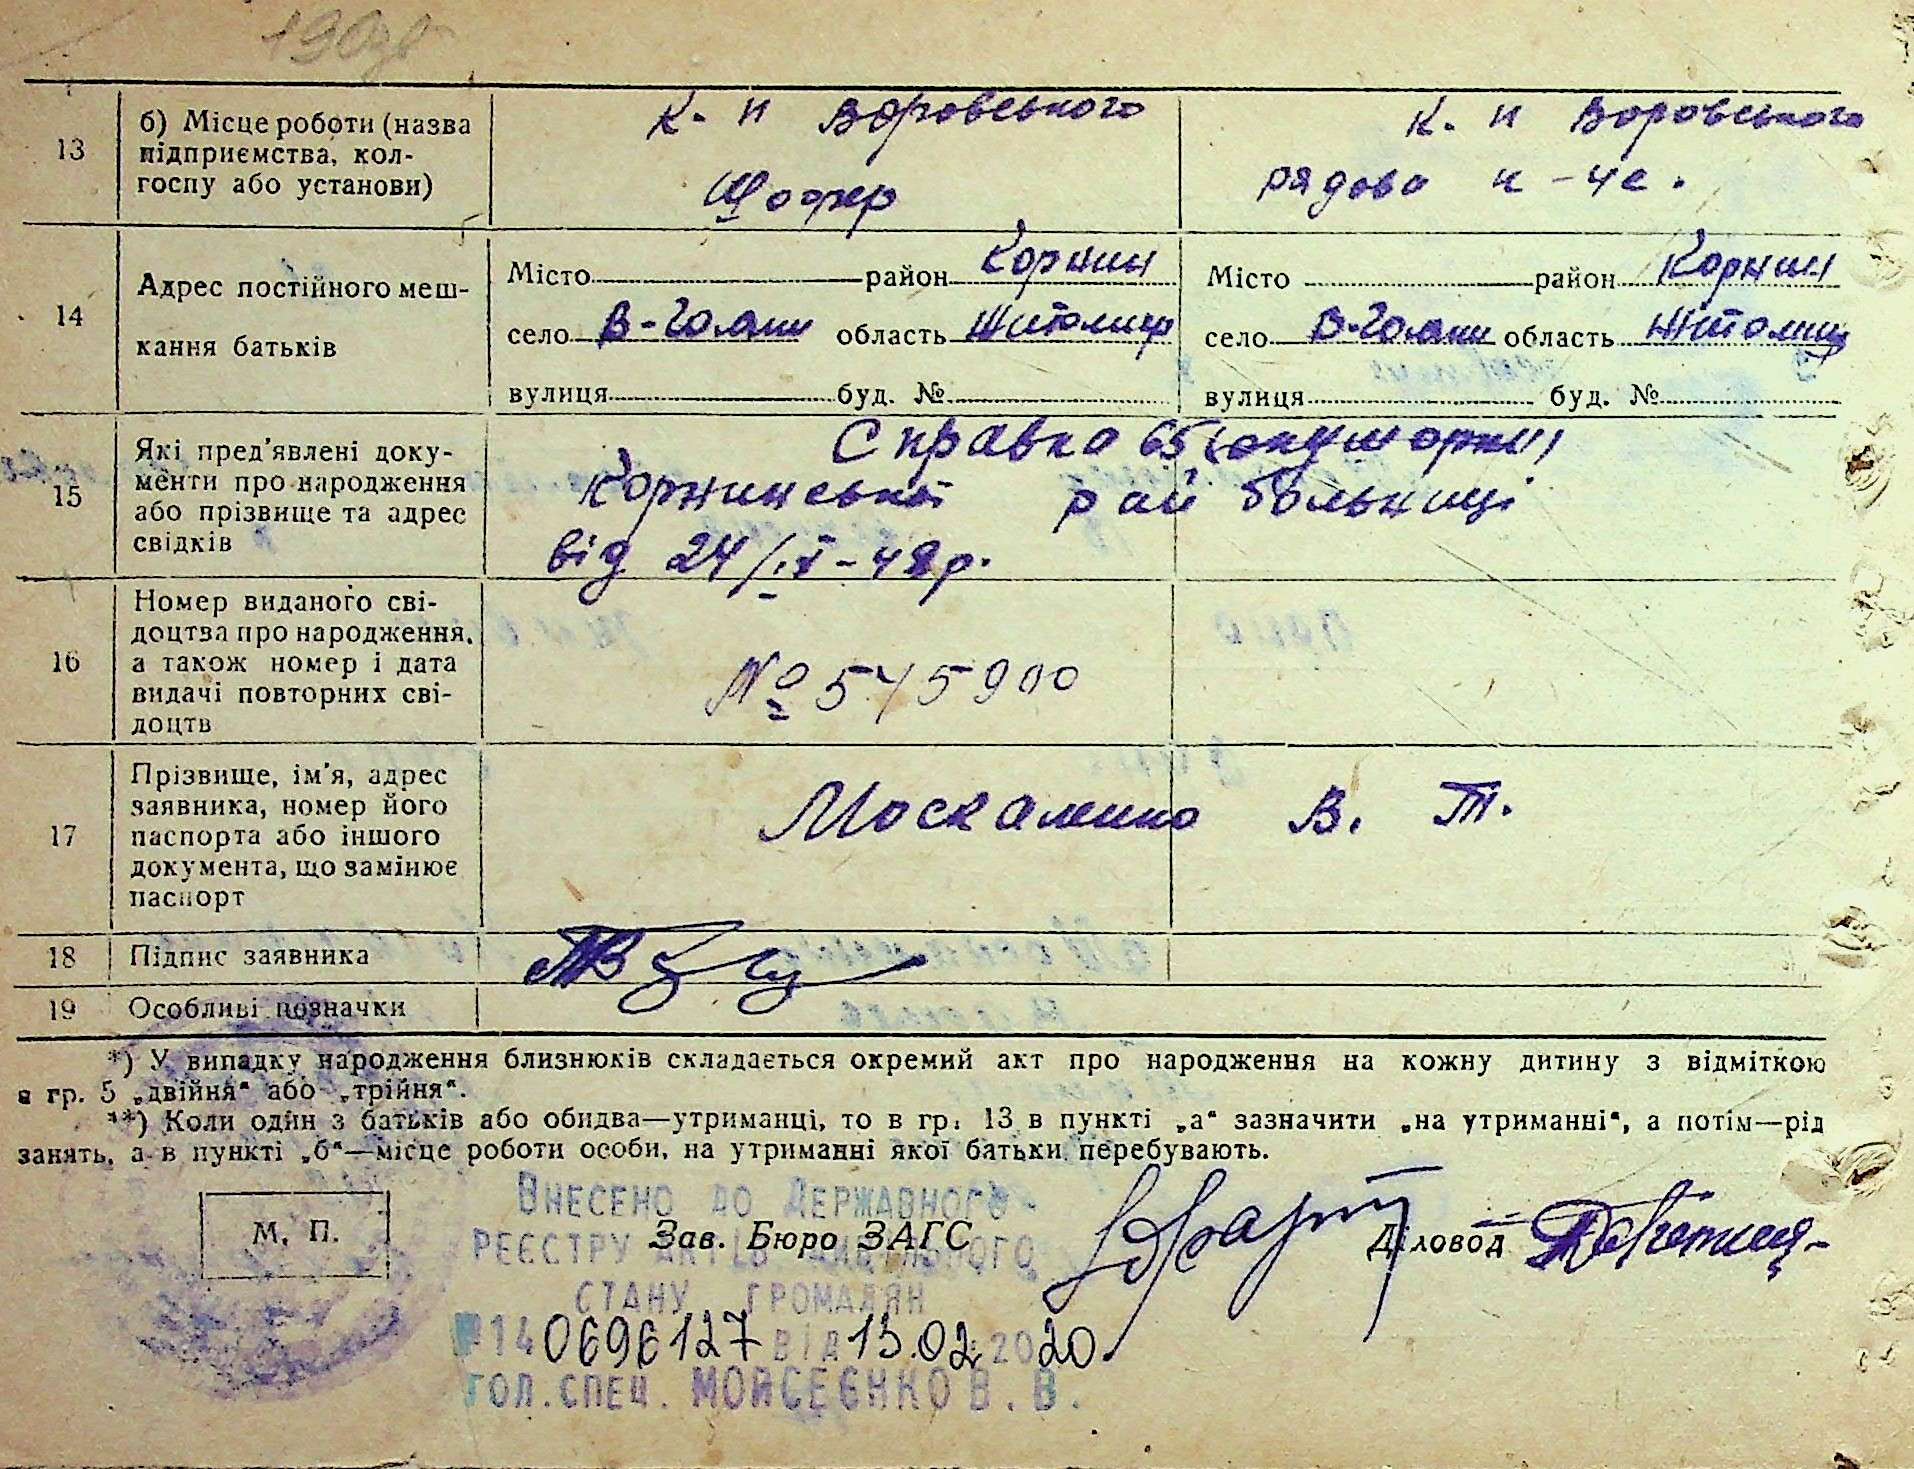 13
б) Місце роботи (назва
підприємства, кол-
госпу або установи)
к. и Воровського
Шофер
к. и Воровського
рядова к-че.
14
Адрес постійного меш-
кання батьків
Місто район Корнин
село В-Голяки область Житомир
вулиця буд. №
Місто район Корнин
село В-Голяки область Житомир
вулиця буд. №
15
Які пред'явлені доку-
менти про народження
або прізвище та адрес
свідків
Справка 65
Корнинської рай больниці
від 24/ІХ-48р.
16
Номер виданого сві-
доцтва про народження,
а також номер і дата
видачі повторних сві-
доцтв
№ 545900
17
Прізвище, ім'я, адрес
заявника, номер його
паспорта або іншого
документа, що замінює
паспорт
Москаленко В. Т.
18
Підпис заявника
19
Особливі позначки
*) У випадку народження близнюків складається окремий акт про народження на кожну дитину з відміткою
в гр. 5 „двійня“ або „трійня“.
**) Коли один з батьків або обидва—утриманці, то в гр. 13 в пункті „а“ зазначити „на утриманні“, а потім—рід
занять, а в пункті „б“—місце роботи особи, на утриманні якої батьки перебувають.
М. П.
Внесено до Державного
реєстру актів цивільного
стану громадян
№140696127 від 13.02.2020.
гол.спец. Мойсеєнко В.В.
Зав. Бюро ЗАГС
Діловод